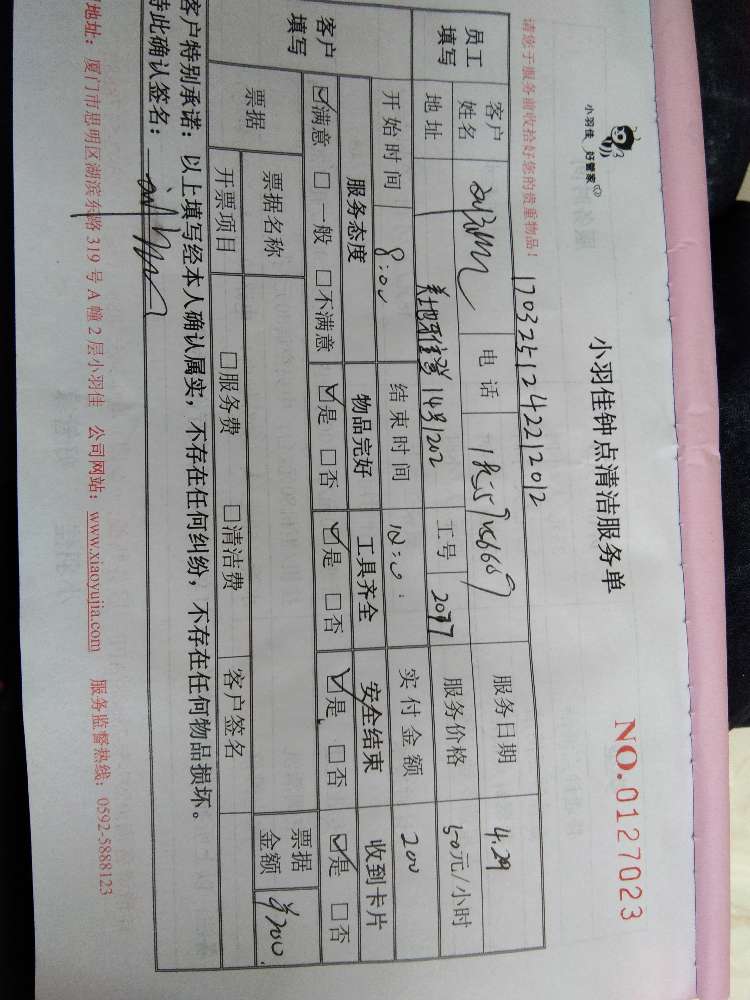 小羽佳 好管家
小羽佳钟点清洁服务单
NO.0127023
请您于服务前收拾好您的贵重物品！
17032512422012
员工填写
客户姓名
电话
服务日期 4.29
地址 美地雅登143/202
工号 2077
服务价格 50元/小时
开始时间 8:00
结束时间 12:00
实付金额 200
客户填写
服务态度 物品完好 工具齐全 安全结束 收到卡片
☑满意 □一般 □不满意 ☑是 □否 ☑是 □否 ☑是 □否 ☑是 □否
票据
票据名称
票据金额 ¥200
开票项目 □服务费 □清洁费 客户签名
客户特别承诺：以上填写经本人确认属实，不存在任何纠纷，不存在任何物品损坏。
特此确认签名：
地址：厦门市思明区湖滨东路 319 号 A 幢 2 层小羽佳 公司网站：www.xiaoyujia.com 服务监督热线：0592-5888123